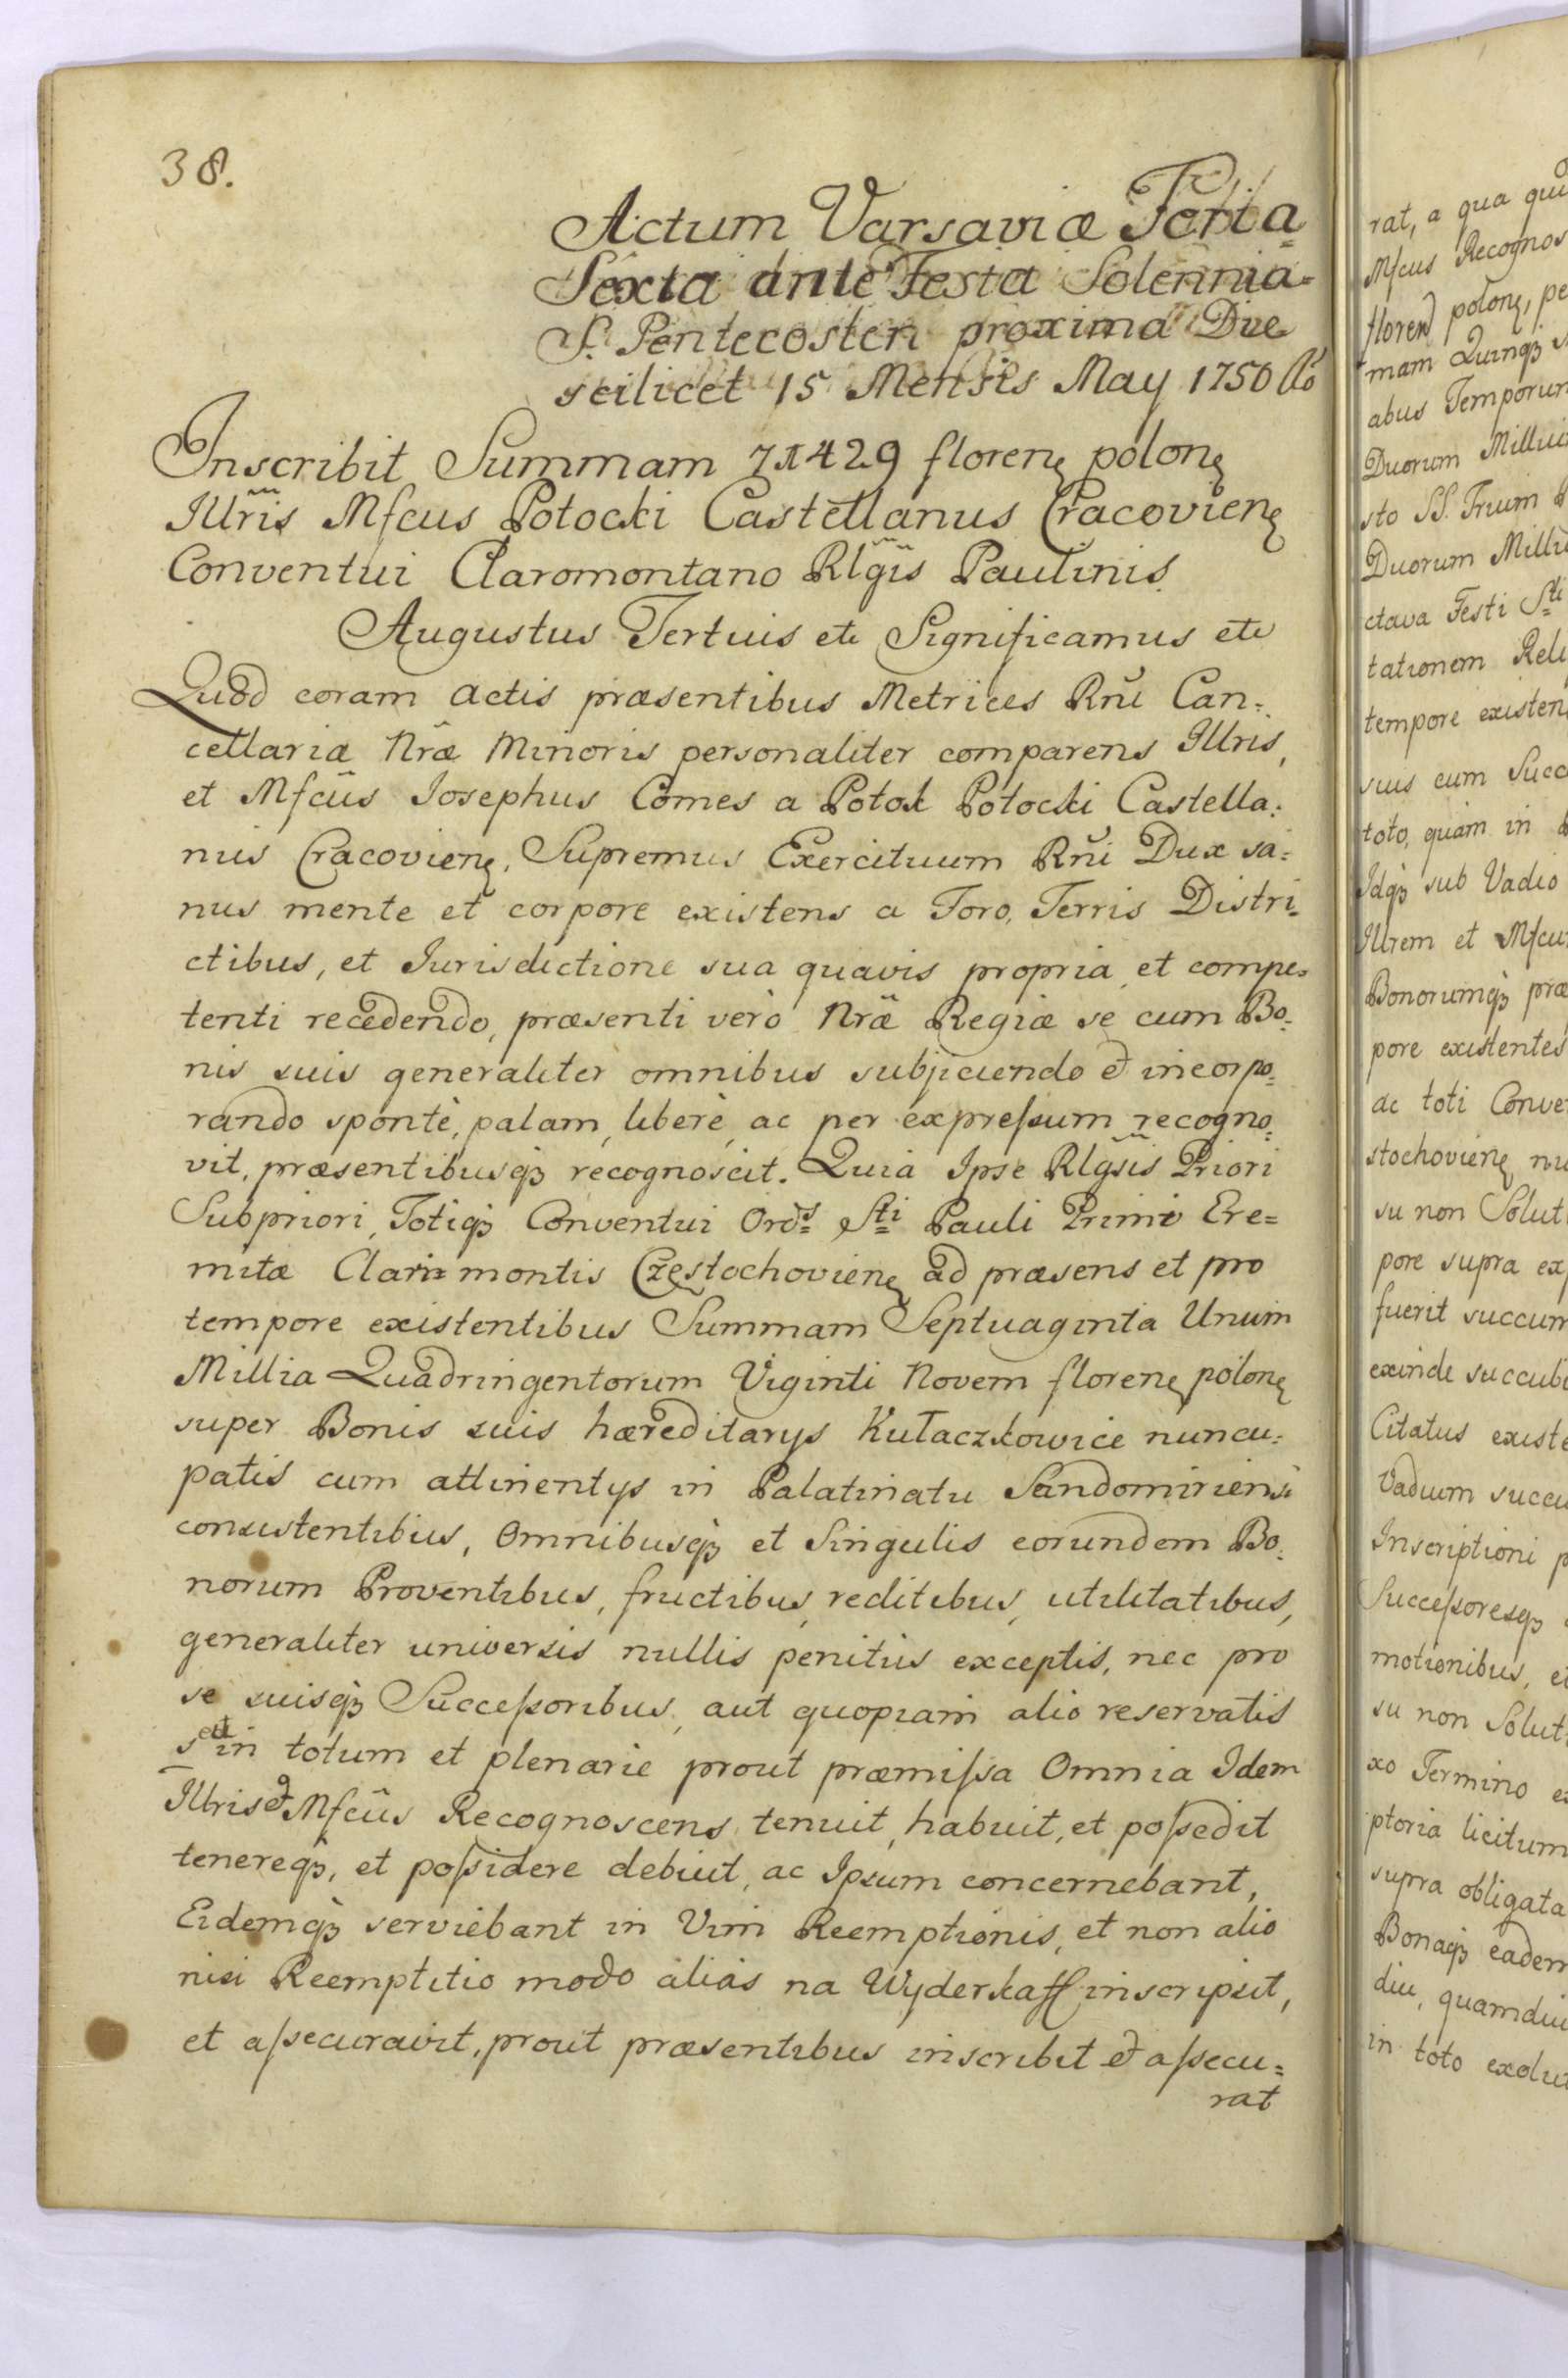 38.
Actum Varsaviæ Feria
Sexta ante Festa Solennia
S. Pentecosten proxima Die
scilicet 15 Mensis May 1750 Ao
Inscribit Summam 71429 florenę polonę
Illris Mfcus Potocki Castellanus Cracovienę
Conventui Claromontano Rlgis Paulinis.
Augustus Tertuis etc Significamus etc
Quod coram actis præsentibus Metrices Rñi Can=
cellariæ Nræ Minoris personaliter comparens Illris,
et Mfcus Iosephus Comes a Potok Potocki Castella=
nus Cracovienę, Supremus Exercituum Rñi Dux sa=
nus mente et corpore existens a Foro, Terris Distri=
ctibus, et Iurisdictione sua quavis propria et compe=
tenti recedendo, præsenti verò Nrã Regiæ se cum Bo=
nis suis generaliter omnibus subjiciendo & incorpo=
rando spontè, palam, liberè, ac per expreſsum recogno=
vit, præsentibusqꝫ recognoscit. Quia Ipse Rlgsis Priori
Subpriori, Totiqꝫ Conventui Ords Sti Pauli Primi Ere=
mitæ Clari montis Częstochovienę ad præsens et pro
tempore existentibus Summam Septuaginta Unum
Millia Quadringentorum Viginti Novem florenę polonę
super Bonis suis hæreditarys Kułaczkowice nuncu=
patis cum attinentys in Palatinatu Sandomiriensi
consistentibus, Omnibusqꝫ et Singulis eorundem Bo=
norum Proventibus, fructibus, reditibus, utilitatibus,
generaliter universis nullis penitùs exceptis, nec pro
se suisqꝫ Succeſsoribus, aut quopiam alio reservatis
sed in totum et plenarie prout præmiſsa Omnia Idem
Illris & Mfcus Recognoscens tenuit, habuit, et poſsedit
tenereqꝫ, et poſsidere debuit, ac Ipsum concernebant,
Eidemqꝫ serviebant in Vim Reemptionis, et non alio
nisi Reemptitio modo aliàs na Wyderkaff inscripsit,
et aſsecuravit, prout præsentibus inscribit & aſsecu=
rat
rat, a qua
Mfcus Recognos
florenę polonę, pe
mam Quinqꝫ
abus Temporum
Duorum Milliu
sto SS. Trium
Duorum Milliu
ctava Festi Sti
tationem Reli
tempore existen
suis cum Succ
toto, quàm in
Idqꝫ sub Vadio
Illrem et Mfcu
Bonorumqꝫ præ
pore existentes
ac toti Conve
stochovienę nu
su non Solut
pore supra ex
fuerit succum
exinde succubu
Citatus existe
Vadium succu
Inscriptioni p
Succeſsoresqꝫ
motionibus, et
su non Solut
xo Termino e
ptoria licitum
supra obligata
Bonaqꝫ eadem
diu, quamdiu
in toto exolu